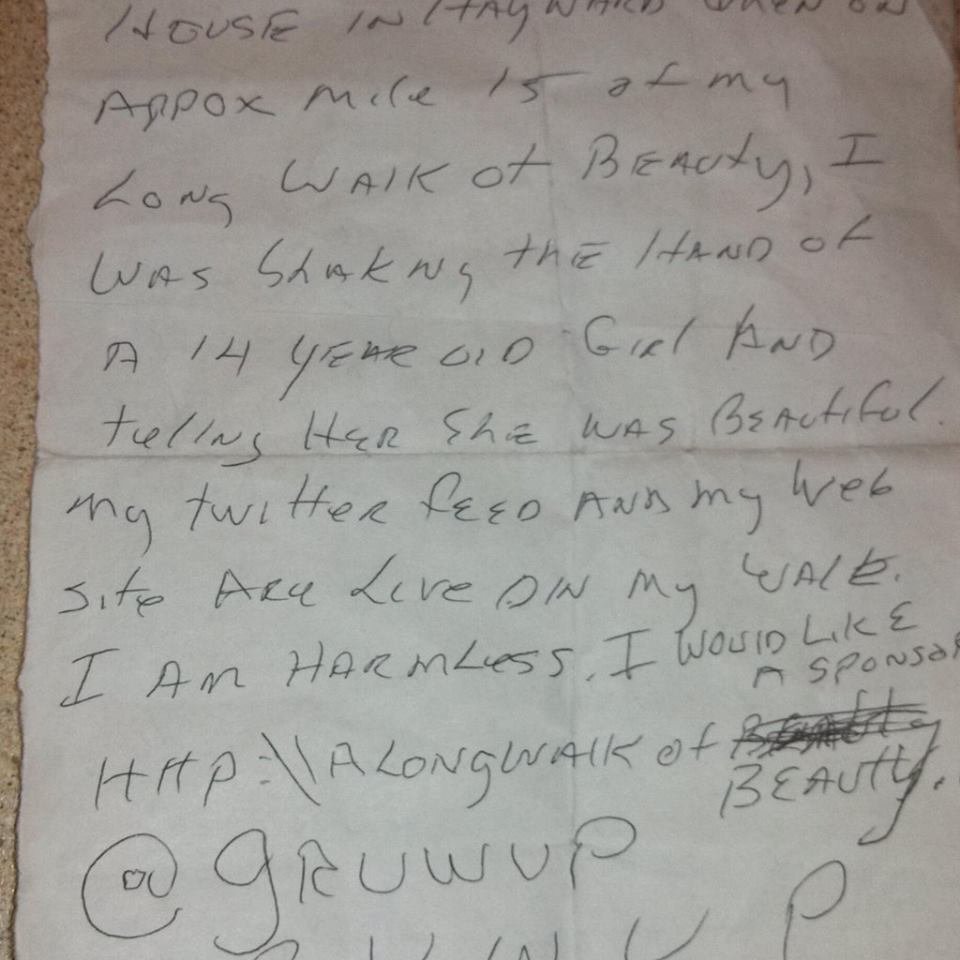 HOUSE IN HAYWARD WHEN ON
APPOX MILE 15 of my
LONG WALK of BEAUty, I
WAS ShAKNg tHE HAND OF
A 14 YEAR OLD GIRL AND
tellINg HER ShE WAS BEAUtiful.
my twittER fEED AND my WEb
SitE ARE LIVE ON my WALK.
I AM HARMLESS. I WOULD LIKE
A SPONSOR
HttP:\\ALONgWALK of
BEAUtY.
@gRUWUP